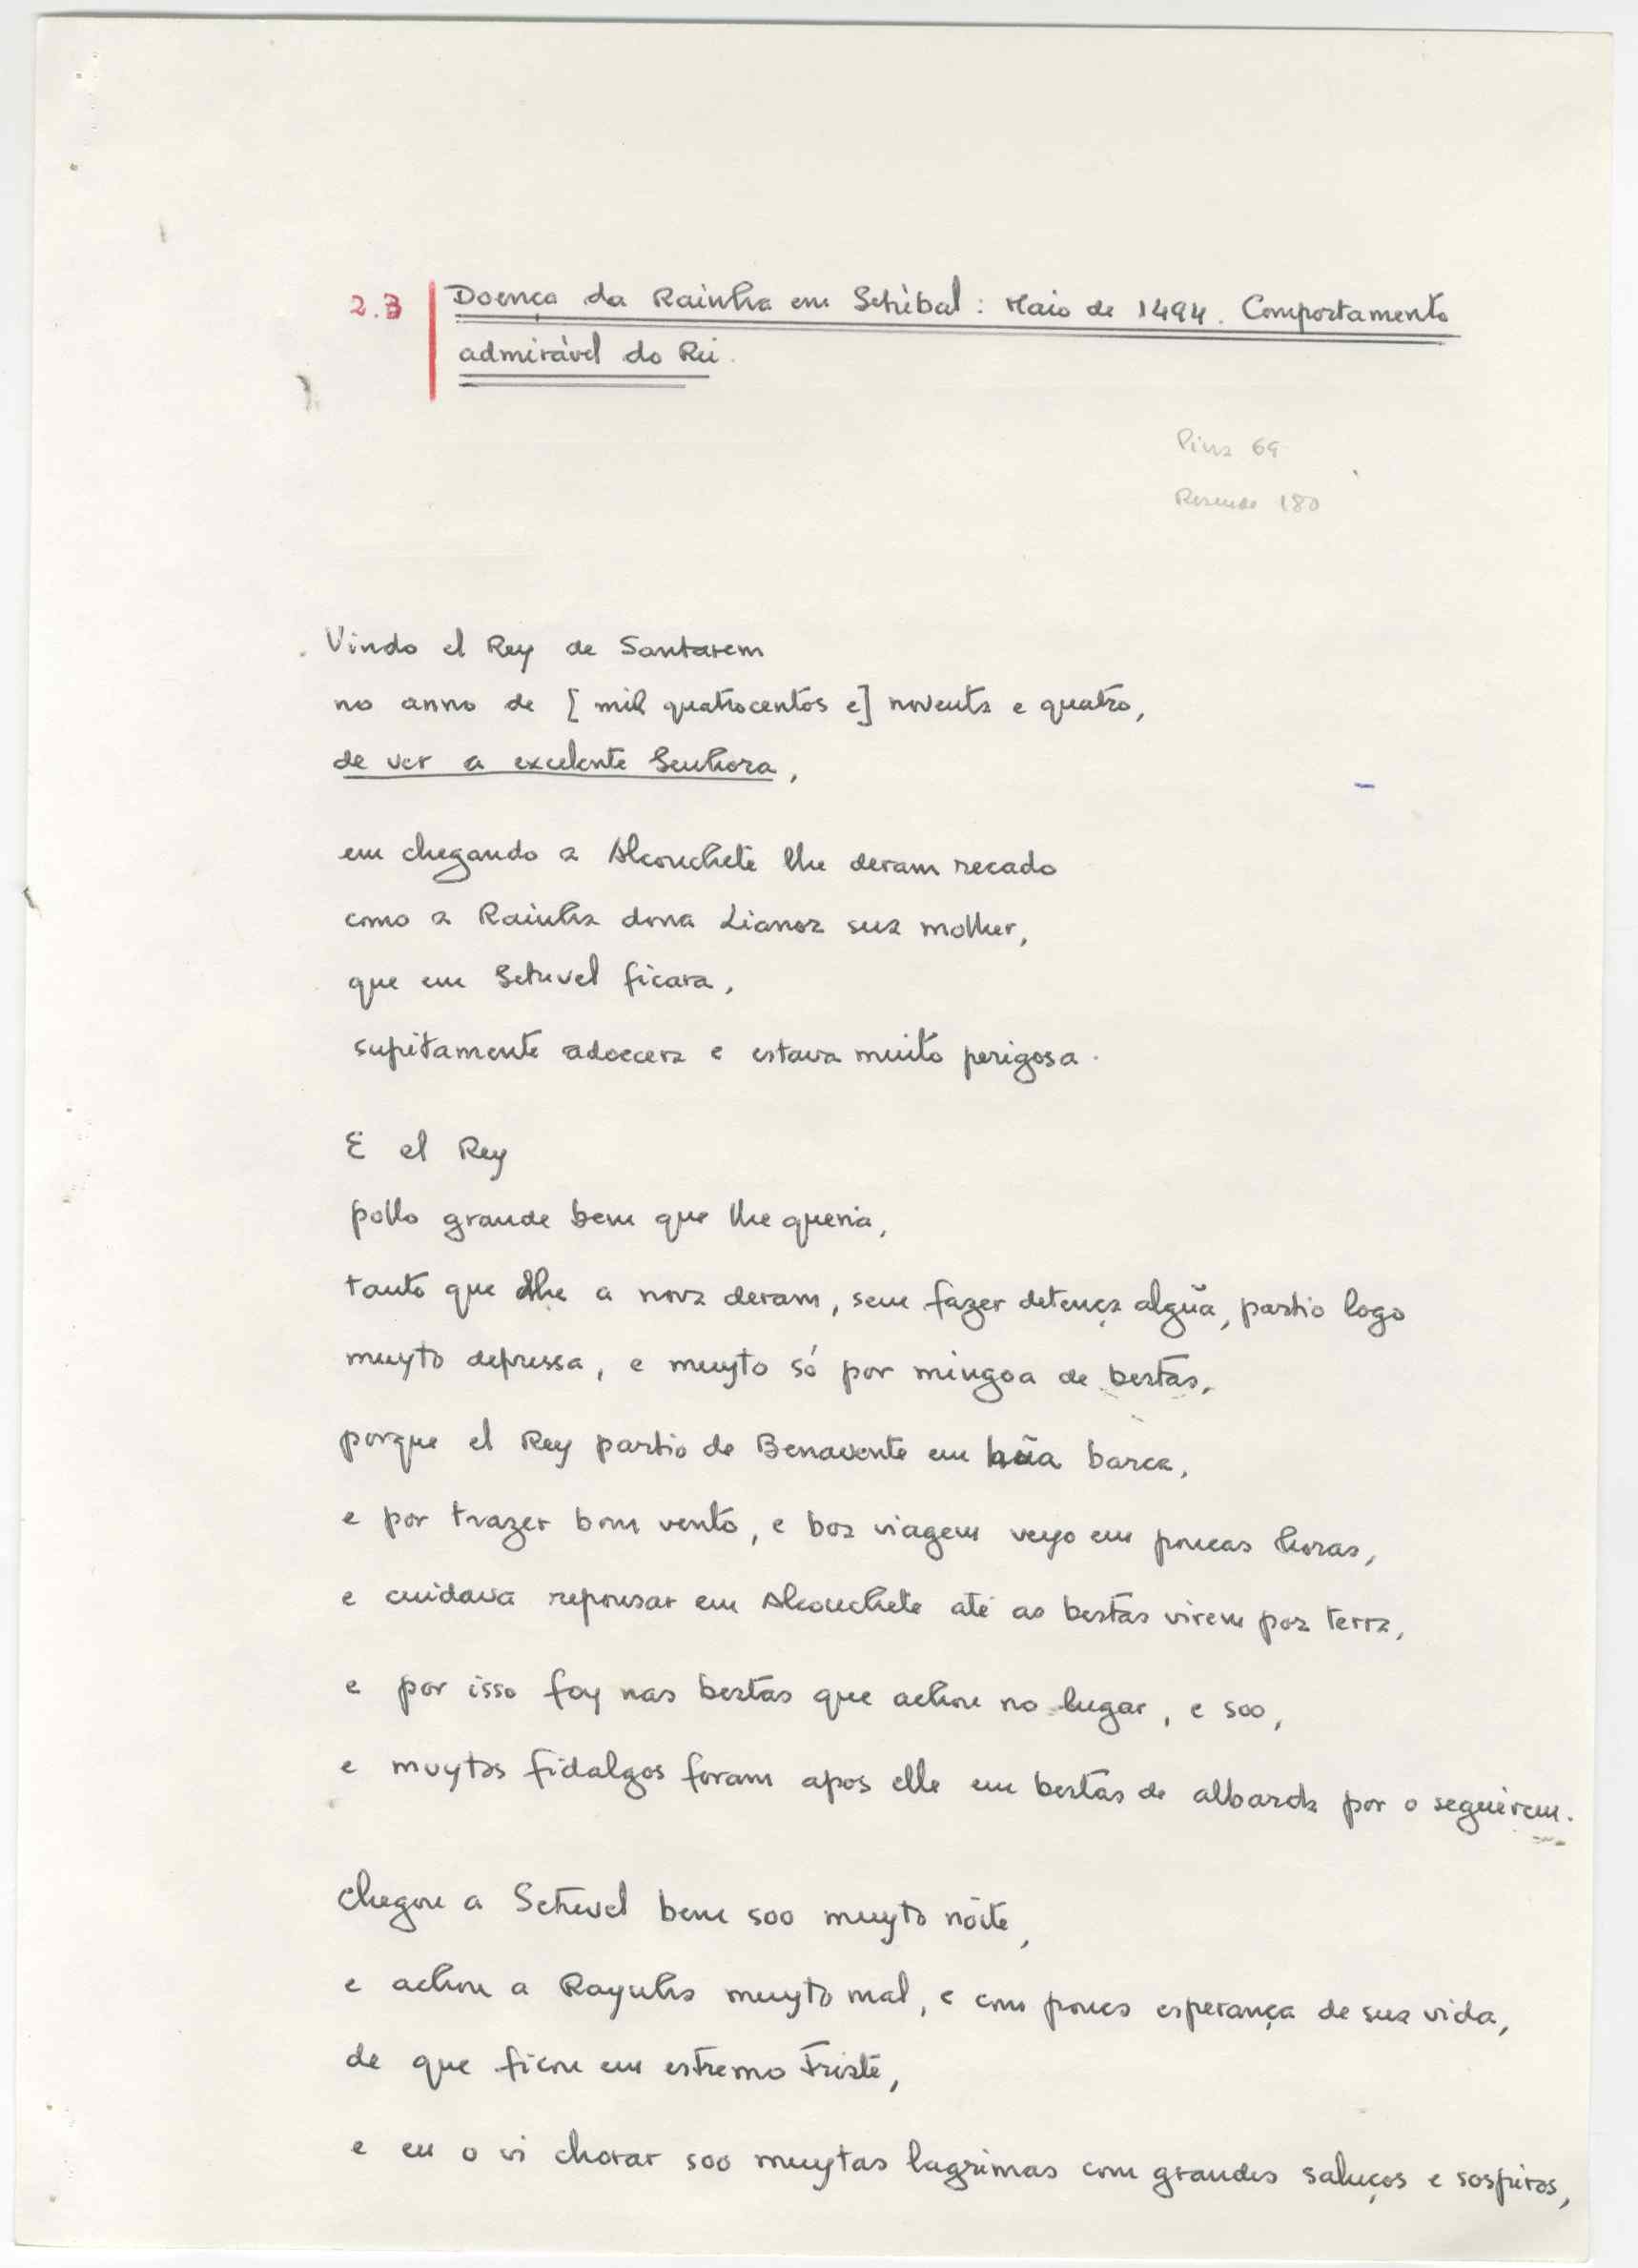 2.3 Doença da Rainha em Setúbal: Maio de 1494. Comportamento
admirável do Rei.
Pina 69
Resende 180
Vindo el Rey de Santarem
no anno de [mil quatrocentos e] noventa e quatro,
de ver a excelente Senhora,
em chegando a Alcouchete lhe deram recado
como a Rainha dona Lianor sua molher,
que em Setuvel ficara,
supitamente adoecera e estava muito perigosa.
E el Rey
pollo grande bem que lhe queria,
tanto que lhe a nova deram, sem fazer detença algũa, partio logo
muyto depressa, e muyto só por mingoa de bestas,
porque el Rey partio de Benavente em hũa barca,
e por trazer bom vento, e boa viagem veyo em poucas horas,
e cuidava repousar em Alcouchete até as bestas virem por terra,
e por isso foy nas bestas que achou no lugar, e soo,
e muytos fidalgos foram apos elle em bestas de albarda por o seguirem.
Chegou a Setuvel bem soo muyto nóite,
e achou a Raynha muyto mal, e com pouca esperança de sua vida,
de que ficou em estremo triste,
e eu o vi chorar soo muytas lagrimas com grandes saluços e sospiros,